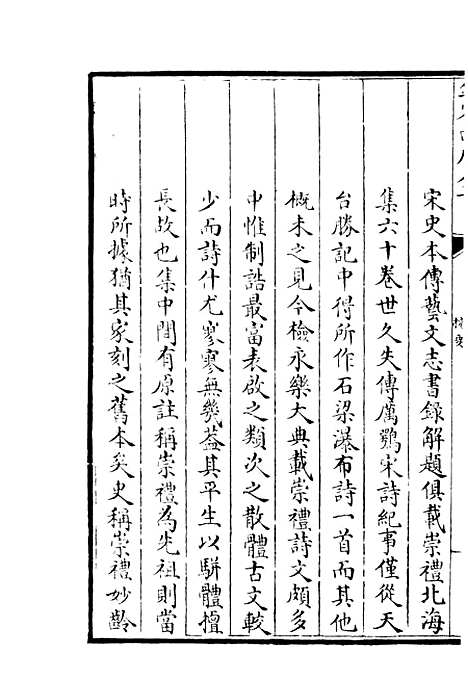 宋史本傳藝文志書錄解題俱載崇禮北海
集六十卷世久失傳厲鶚宋詩紀事僅從天
台勝記中得所作石梁瀑布詩一首而其他
概未之見今檢永樂大典載崇禮詩文頗多
中惟制誥最富表啟之類次之散體古文較
少而詩什尤寥寥無幾葢其平生以駢體擅
長故也集中間有原註稱崇禮為先祖則當
時所據猶其家刻之舊本矣史稱崇禮妙齡